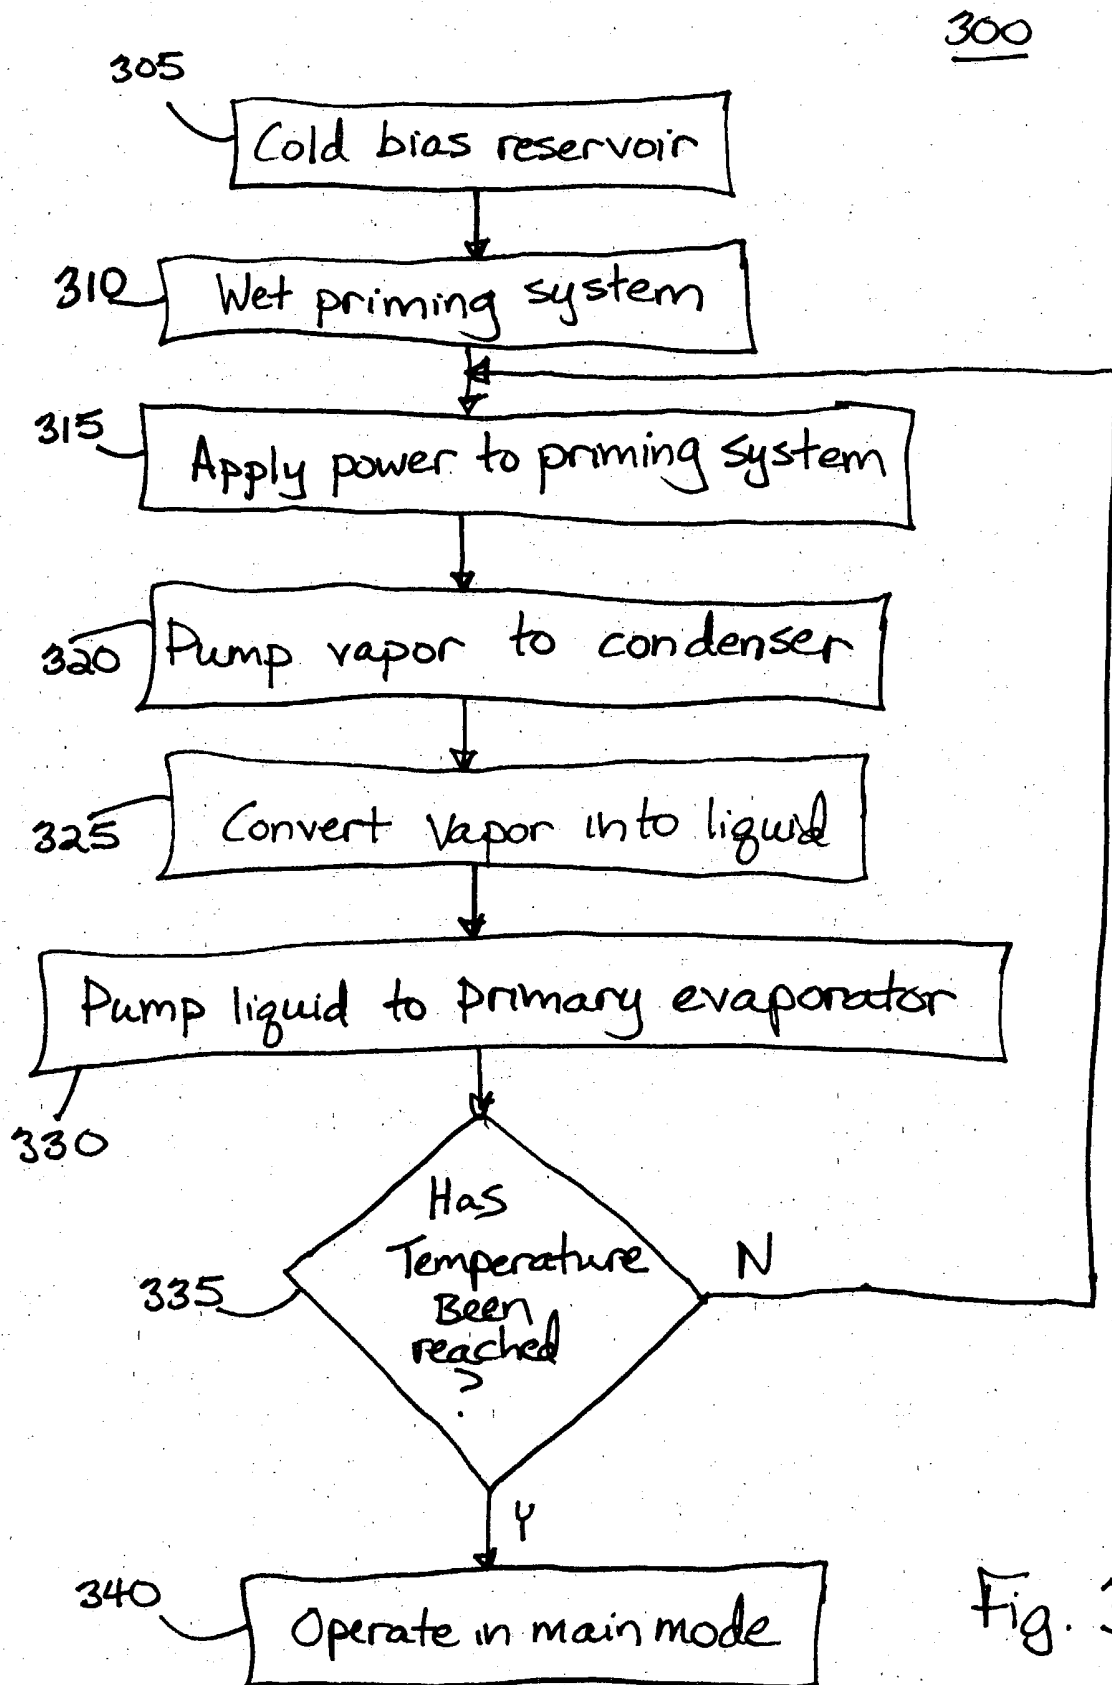 300
305
Cold bias reservoir
310
Wet priming system
315
Apply power to priming system
320
Pump vapor to condenser
325
Convert Vapor into liquid
Pump liquid to primary evaporator
330
Has
Temperature
Been
reached
?
N
335
Y
340
Operate in main mode
Fig.